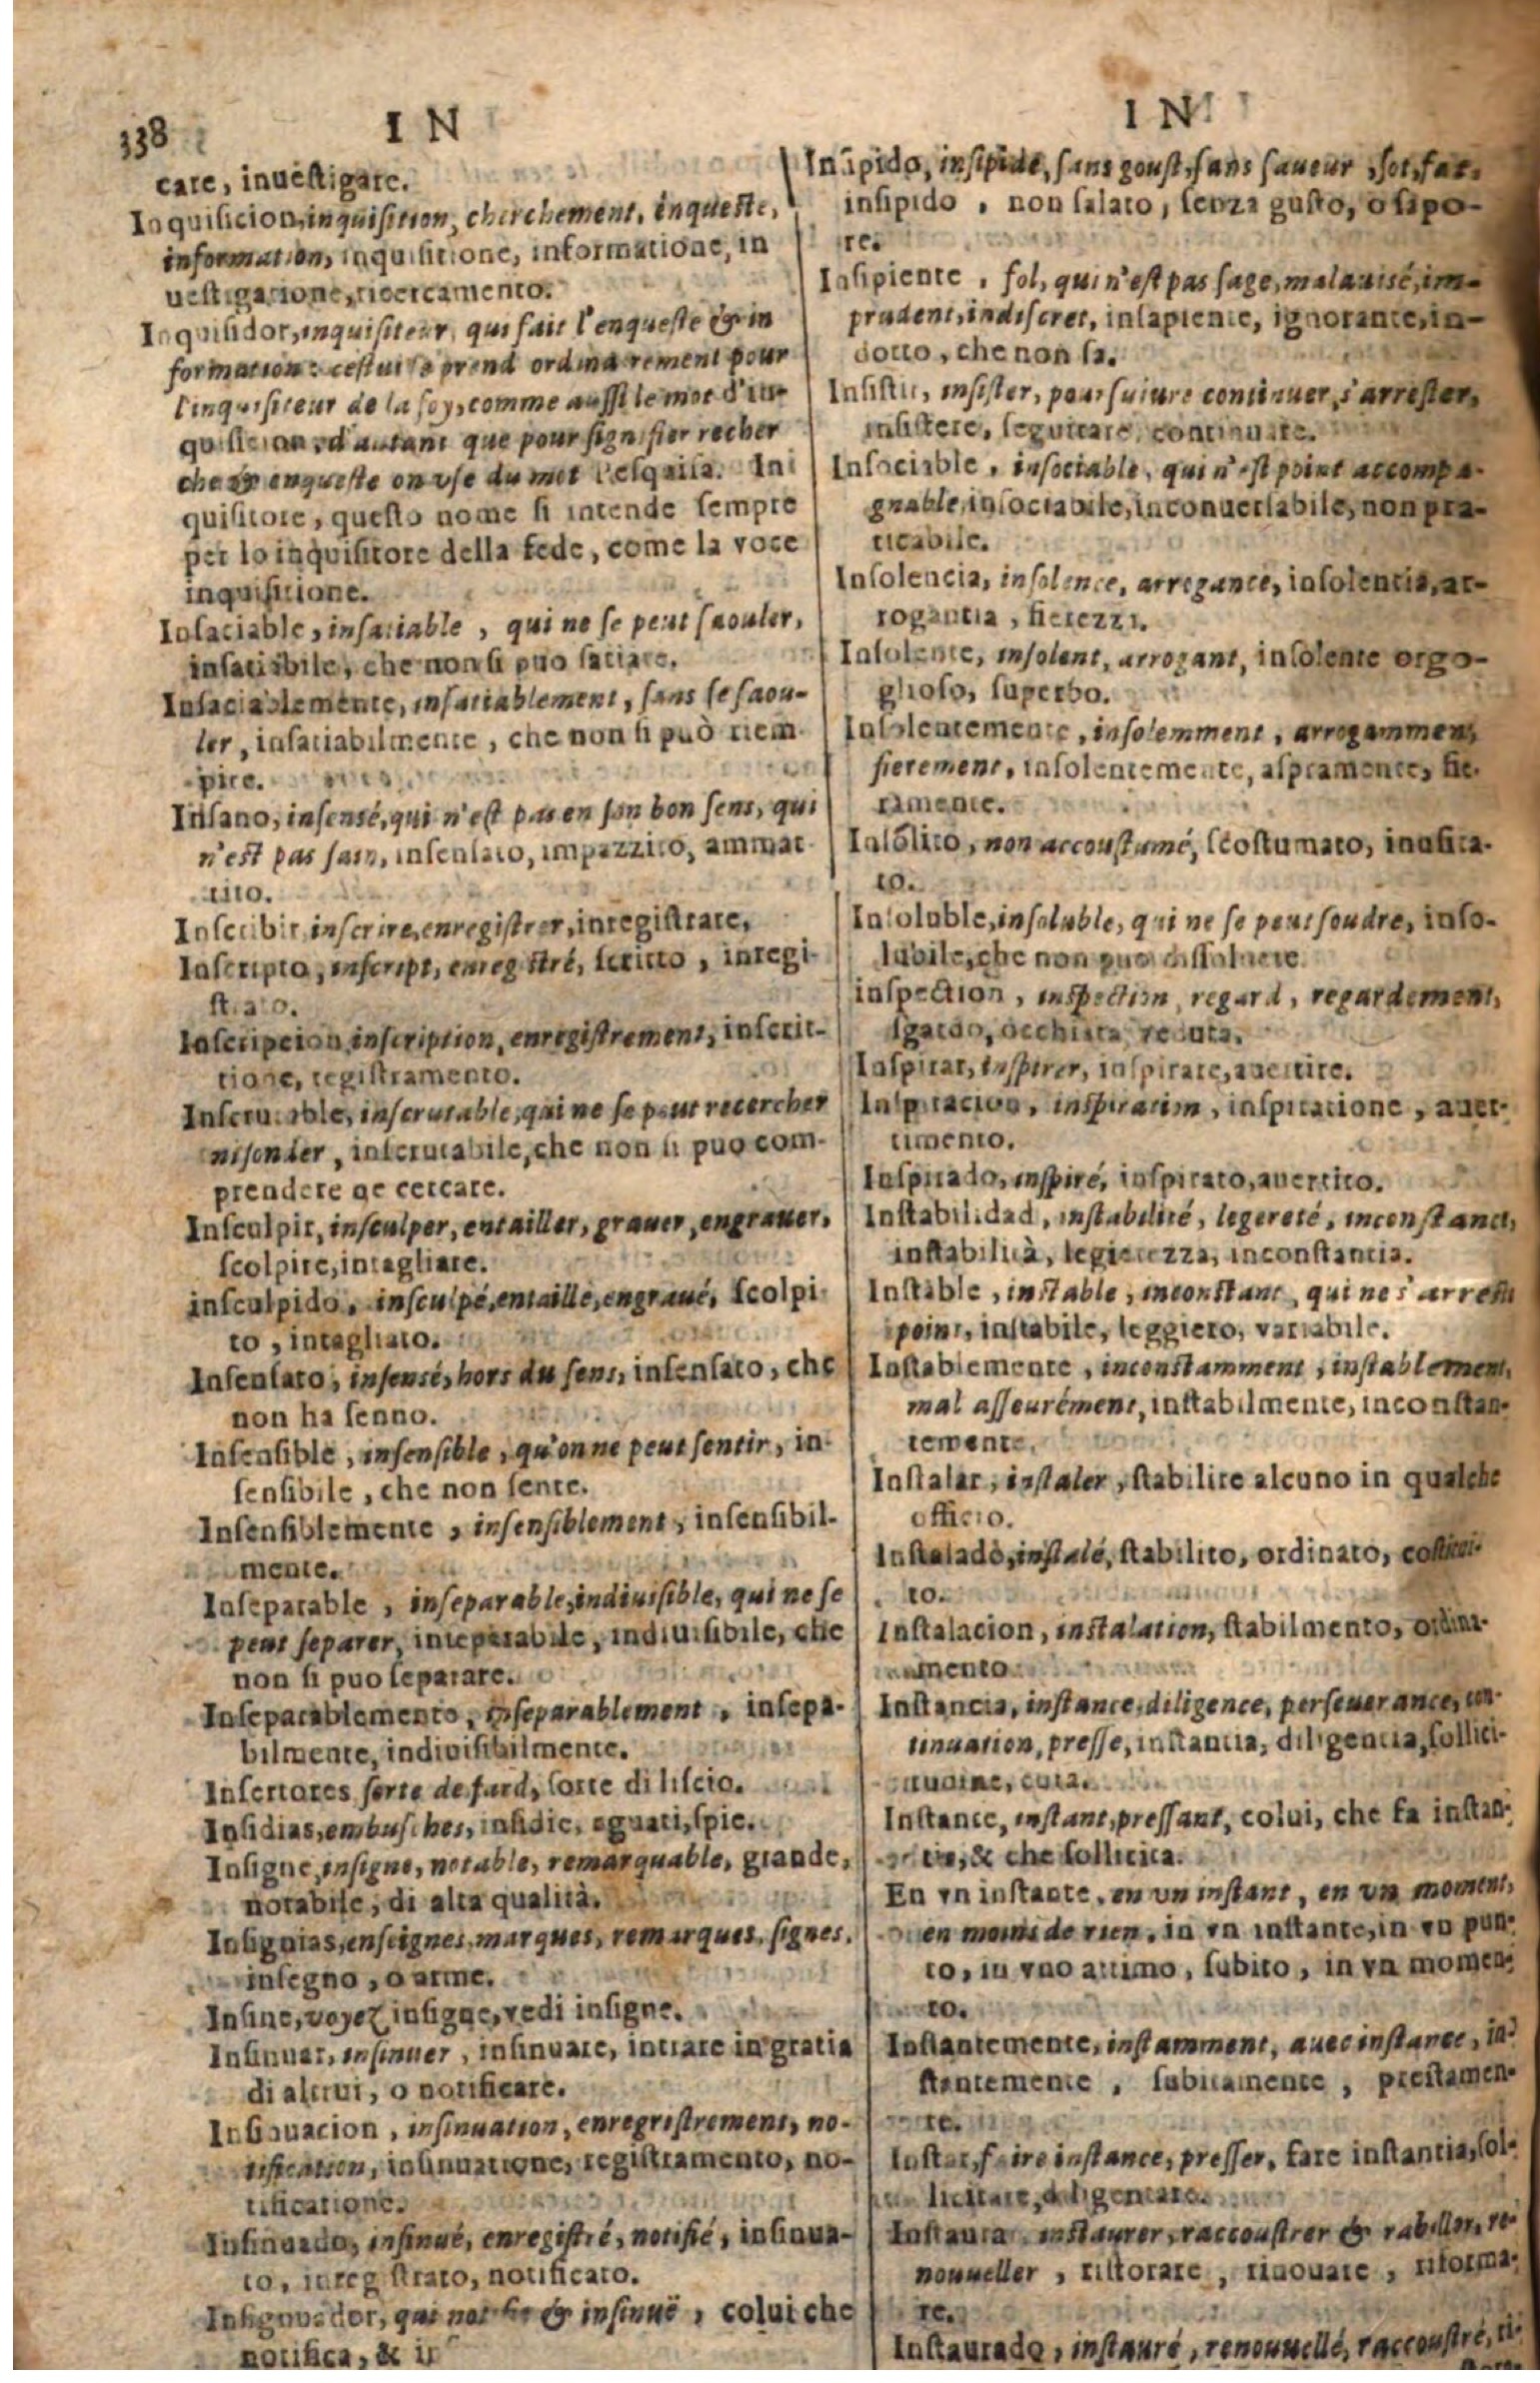 338 IN
care, inuestigare.
Inquisicion, inquisition, cherchement, enqueste,
information, inquisitione, informatione, in
uestigatione, ricercamento.
Inquisidor, inquisiteur, qui fait l'enqueste & in
formation: cestui se prend ordinairement pour
l'inquisiteur de la foy, comme aussi le mot d'in-
quisition, d'autant que pour signifier recher
che & enqueste on vse du mot Pesquisa. In
quisitore, questo nome si intende sempre
per lo inquisitore della fede, come la voce
inquisitione.
Insaciable, insatiable, qui ne se peut saouler,
insatiabile, che non si puo satiare.
Insaciablemente, insatiablement, sans se saou-
ler, insatiabilmente, che non si può riem
pire.
Insano, insensé, qui n'est pas en son bon sens, qui
n'est pas sain, insensato, impazzito, ammat
tito.
Inscribir, inscrire, enregistrer, inregistrare,
Inscripto, inscript, enregistré, scritto, inregi-
strato.
Inscripcion, inscription, enregistrement, inscrit-
tione, registramento.
Inscrutable, inscrutable, qui ne se peut recercher
ni sonder, inscrutabile, che non si puo com-
prendere ne cercare.
Insculpir, insculper, entailler, grauer, engrauer,
scolpire, intagliare.
insculpido, insculpé, entaillé, engraué, scolpi
to, intagliato.
Insensato, insensé, hors du sens, insensato, che
non ha senno.
Insensible, insensible, qu'on ne peut sentir, in-
sensibile, che non sente.
Insensiblemente, insensiblement, insensibil-
mente.
Inseparable, inseparable, indiuisible, qui ne se
peut separer, inseparabile, indiuisibile, che
non si puo separare.
Inseparablemento, inseparablement, insepa-
bilmente, indivisibilmente.
Insertores sorte de fard, sorte di liscio.
Insidias, embusches, insidie, aguati, spie.
Insigne, insigne, notable, remarquable, grande,
notabile, di alta qualità.
Insignias, enseignes, marques, remarques, signes.
insegno, o arme.
Insine, voyez insigne, vedi insigne.
Insinuar, insinuer, insinuare, intrare in gratia
di altrui, o notificare.
Insinuacion, insinuation, enregristrement, no-
tification, insinuatione, registramento, no-
tificatione.
Insinuado, insinué, enregistré, notifié, insinua-
to, inregistrato, notificato.
Insignuador, qui notifie & insinuë, colui che
notifica, &
IN
Insipido, insipide, sans goust, sans saueur, sot, fat,
insipido, non salato, senza gusto, o sapo-
re.
Insipiente, fol, qui n'est pas sage, malauisé, im-
prudent, indiscret, insapiente, ignorante, in-
dotto, che non sa.
Insistir, insister, poursuiure continuer, s'arrester,
insistere, seguitare, continuare.
Insociable, insociable, qui n'est point accompa-
gnable, insociabile, inconuersabile, non pra-
ticabile.
Insolencia, insolence, arrogance, insolentia, ar-
rogantia, fierezza.
Insolente, insolent, arrogant, insolente orgo-
glioso, superbo.
Insolentemente, insolemment, arrogamment,
fierement, insolentemente, aspramente, fie-
ramente.
Insólito, non accoustumé, scostumato, inusita-
to.
Insoluble, insoluble, qui ne se peut soudre, inso-
lubile, che non puo dissoluere.
inspection, inspection, regard, regardement,
sgardo, occhiata, veduta.
Inspirar, inspirer, inspirare, auertire.
Inspiracion, inspiration, inspiratione, auer-
timento.
Inspirado, inspiré, inspirato, auertito.
Instabilidad, instabilité, legereté, inconstance,
instabilità, legierezza, inconstantia.
Instable, instable, inconstant, qui ne s'arreste
point, instabile, leggiero, variabile.
Instablemente, inconstamment, instablement,
mal asseurément, instabilmente, inconstan-
temente.
Instalar, instaler, stabilire alcuno in qualche
officio.
Instalado, instalé, stabilito, ordinato, costitui-
to.
Instalacion, instalation, stabilmento, ordina-
mento.
Instancia, instance, diligence, perseuerance, con-
tinuation, presse, instantia, diligentia, sollici-
tudine, cura.
Instante, instant, pressant, colui, che fa instan-
tia, & che sollicita.
En vn instante, en vn instant, en vn moment,
en moins de rien, in vn instante, in vn pun-
to, in vno attimo, subito, in vn momen-
to.
Instantemente, instamment, auec instance, in-
stantemente, subitamente, prestamen-
te.
Instar, faire instance, presser, fare instantia, sol-
licitare, diligentare.
Instaurar, instaurer, raccoustrer & rabiller, re-
nouueller, ristorare, rinouare, riforma-
re.
Instaurado, instauré, renouuellé, raccoustré, ri-